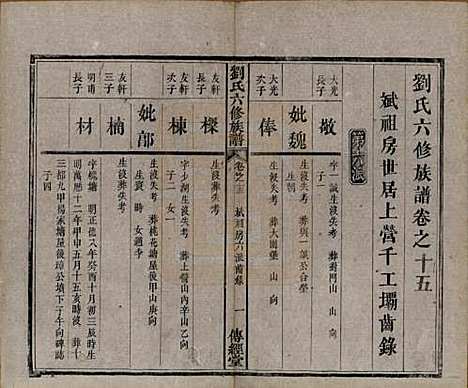 劉氏六修族譜卷之十五
斌祖房世居上營千工壩齒錄
大光長子
敬
字一誠生沒失考 葬對門山 山 向
子一
妣魏
生沒失考 葬與一誠公合塋
生朝
大光次子
俸
生沒失考 葬大園堡 山 向
劉氏六修族譜
卷之十五 斌祖房六派齒錄
一 傳經堂
友軒長子
樑
生沒葬失考
友軒次子
棟
字少湖生沒失考 葬上中山辛山乙向
子二 女一
妣郭
生沒失考 葬桃花塘屋後甲山庚向
生袞 時 女適李
友軒三子
楠
生沒葬失考
明甫長子
材
字槐塘 明正德八年癸酉十月初三辰時生
明萬曆十二年甲申五月十五亥時沒 葬十
三都九甲楊家塘屋後璋公墳下子午向碑誌
子四